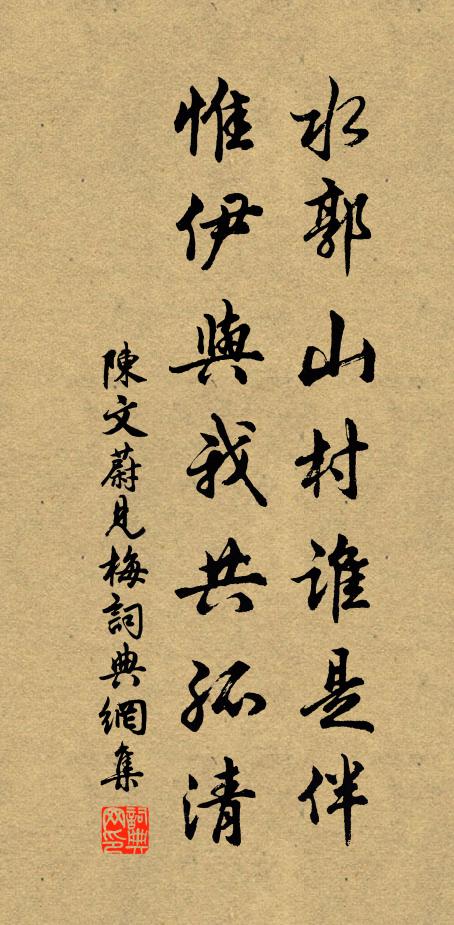 水郭山村誰是伴
惟伊與我共孤清
陳文蔚見梅詞典網集
詞典网印